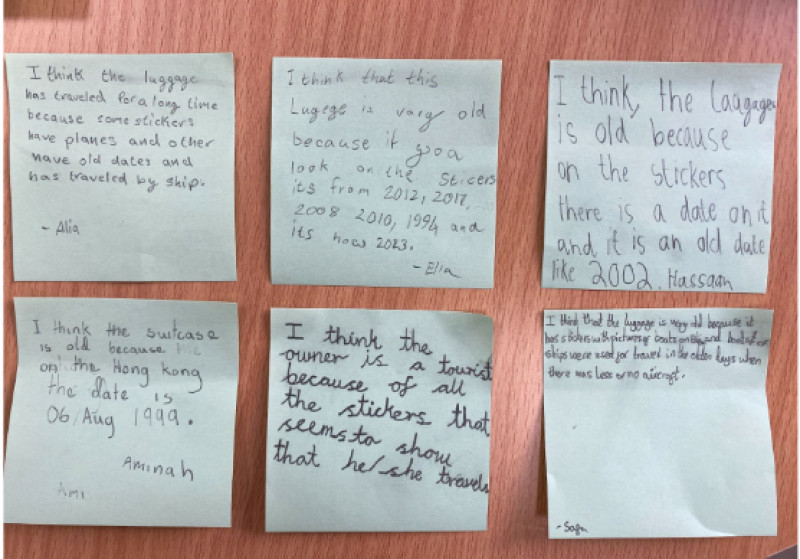 I think the luggage
has traveled for a long time
because some stickers
have planes and other
have old dates and
has traveled by ship.
- Alia
I think that this
Lugege is vary old
because if you
look on the Sticers
its from 2012, 2017,
2008 2010, 1994 and
its now 2023.
- Elia
I think, the Laagage
is old because
on the stickers
there is a date on it
and it is an old date
like 2002. Hassaan
I think the suitcase
is old because
on the Hong Kong
the date is
06/Aug 1999.
Aminah
Ami
I think the
owner is a tourist
because of all
the stickers that
seems to show
that he/she travels
I think that the luggage is very old because it
has stickers with pictures of boats on it and boats or
ships were used for travel in the olden days when
there was less or no aircraft.